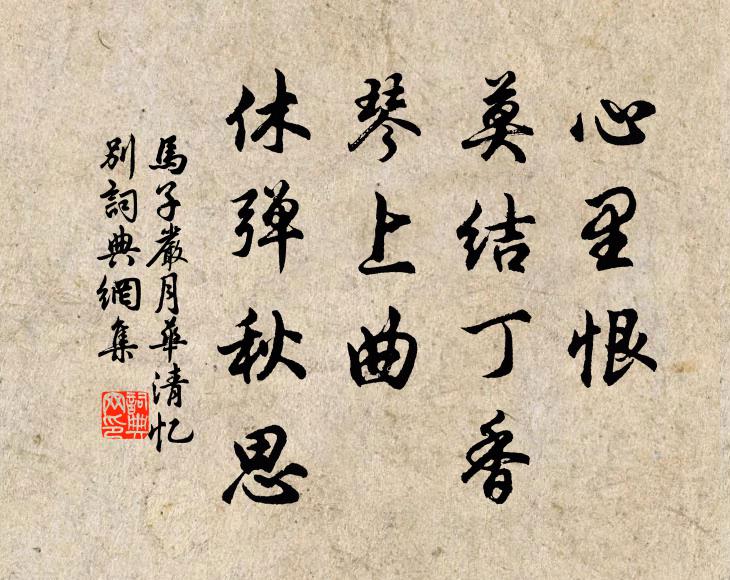 心里恨
莫结丁香
琴上曲
休弹秋思
馬子嚴月華清忆
别詞典網集
詞典
网印